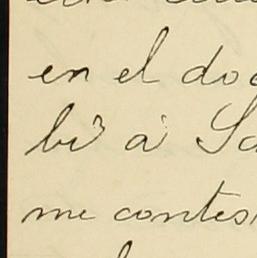 en el do
bí á Sa
me contes